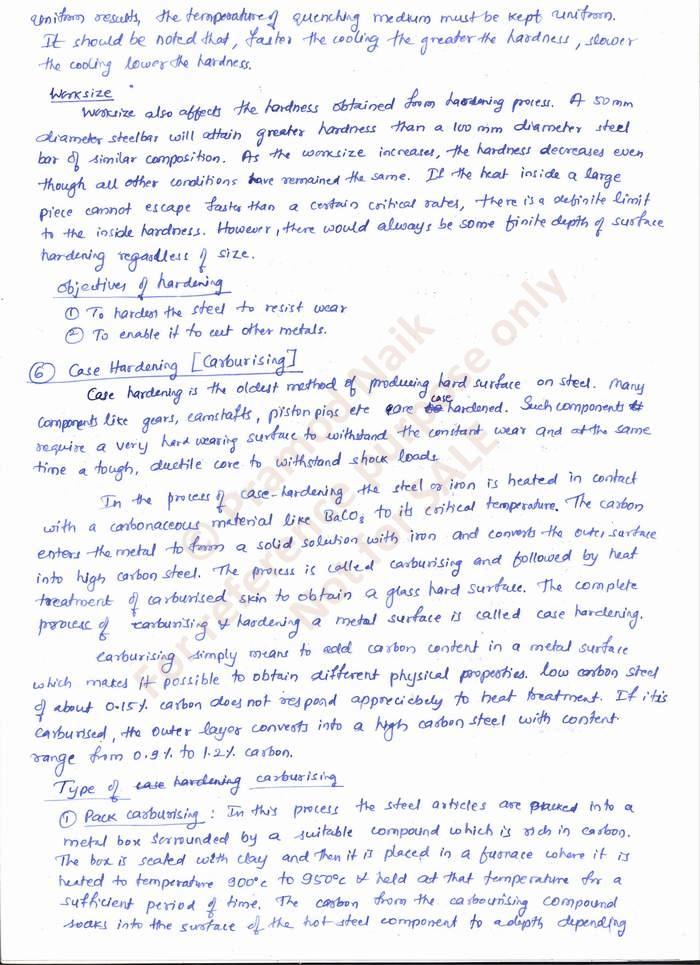 uniform results, the temperature of quenching medium must be kept uniform.
It should be noted that, faster the cooling the greater the hardness, slower
the cooling lower the hardness.
Worksize
Worksize also affects the hardness obtained from hardening process. A 50mm
diameter steel bar will attain greater hardness than a 100 mm diameter steel
bar of similar composition. As the worksize increases, the hardness decreases even
though all other conditions have remained the same. If the heat inside a large
piece cannot escape faster than a certain critical rates, there is a definite limit
to the inside hardness. However, there would always be some finite depth of surface
hardening regardless of size.
Objectives of hardening
① To harden the steel to resist wear
② To enable it to cut other metals.
⑥ Case Hardening [Carburising]
Case hardening is the oldest method of producing hard surface on steel. Many
components like gears, camstafts, piston pins etc are case hardened. Such components
require a very hard wearing surface to withstand the constant wear and at the same
time a tough, ductile core to withstand shock loads.
In the process of case-hardening the steel or iron is heated in contact
with a carbonaceous material like BaCO3 to its critical temperature. The carbon
enters the metal to form a solid solution with iron and converts the outer surface
into high carbon steel. The process is called carburising and followed by heat
treatment of carburised skin to obtain a glass hard surface. The complete
process of carburising & hardening a metal surface is called case hardening.
Carburising simply means to add carbon content in a metal surface
which makes it possible to obtain different physical properties. low carbon steel
of about 0.15% carbon does not respond appreciebely to heat treatment. If it is
carburised, the outer layer converts into a high carbon steel with content
range from 0.9% to 1.2% carbon.
Type of case hardening carburising
① Pack carburising : In this process the steel articles are placed into a
metal box sorrounded by a suitable compound which is rich in carbon.
The box is sealed with clay and then it is placed in a furnace where it is
heated to temperature 900°c to 950°c & held at that temperature for a
sufficient period of time. The carbon from the carbourising compound
soaks into the surface of the hot steel component to a depth depending
© Pramod Naik
For reference purpose only
Not for SALE